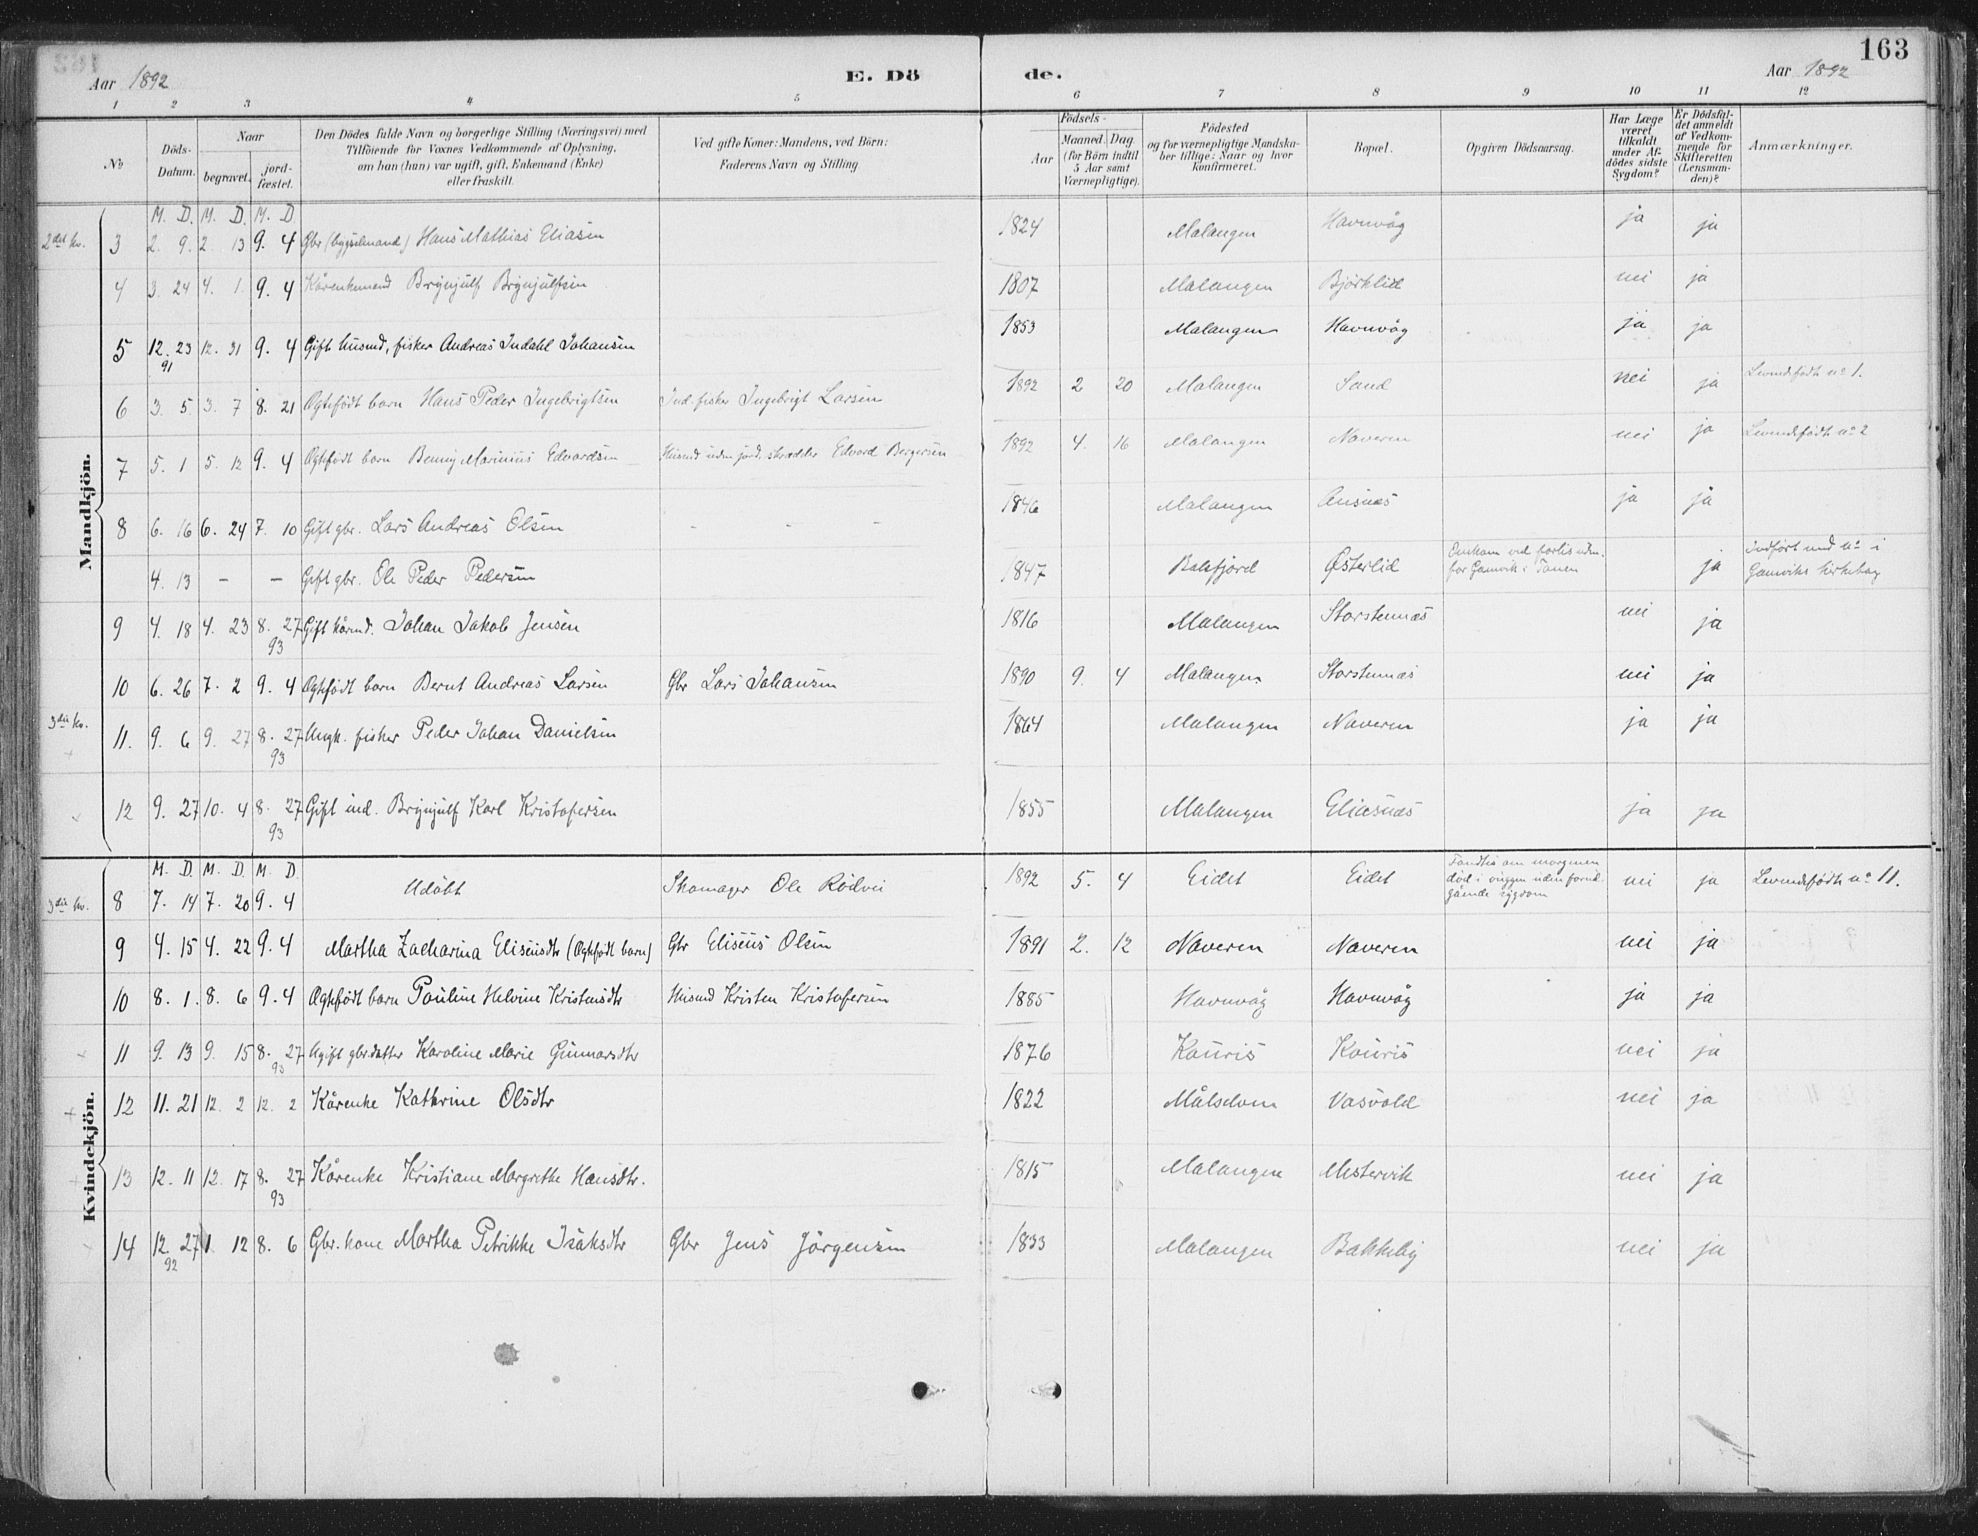 163
Aar 1892 E. Dö de. Aar 1892
1 2 3 4 5 6 7 8 9 10 11 12
No
Döds-Datum.
Naar
begravet.
jordfæstet.
Den Dödes fulde Navn og borgerlige Stilling (Næringsvei) med
Tilföiende for Voxnes Vedkommende af Oplysning,
om han (hun) var ugift, gift, Enkemand (Enke)
eller fraskilt.
Ved gifte Koner: Mandens, ved Börn:
Faderens Navn og Stilling.
Födsels-
Aar
Maaned. Dag
(for Börn indtil
5 Aar samt
Værnepligtige).
Födested
og for værnepligtige Mandska-
ber tillige: Naar og hvor
konfirmeret.
Bopæl.
Opgiven Dödsaarsag.
Har Læge
været
tilkaldt
under Af-
dödes sidste
Sygdom?
Er Dödsfal-
det anmeldt
af Vedkom-
mende for
Skifteretten
(Lensman-
den)?
Anmærkninger.
Mandkjön.
M. D. M. D. M. D
2det kv. 3 2. 9. 2 13 9. 4 Gbr (bygselmand) Hans Mathias Eliasen 1824 Malangen Havnvåg ja ja
4 3. 24 4. 1. 9. 4 Kårenkemand Brynjulf Brynjulfsen 1807 Malangen Björklid nei ja
5 12. 23 12. 31 9. 4 Gift husmd, fisker Andreas Indahl Johansen 1853 Malangen Havnvåg ja ja
91
6 3. 5 3. 7 8. 21 Ægtefödt barn Hans Peder Ingebrigtsen Ind. fisker Ingebrigt Larsen 1892 2 20 Malangen Sand nei ja Levendefödt no 1.
7 5. 1 5. 12 9. 4 Ægtefödt barn Benny Marinius Edvardsen Husmd uden jord, skrædder Edvard Bergersen 1892 4. 16 Malangen Naveren nei ja Levendefödt no 2
8 6. 16 6. 24 7. 10 Gift gbr. Lars Andreas Olsen - - - 1846 Malangen Ansnæs ja ja
4. 13 - - Gift gbr. Ole Peder Pedersen 1847 Balsfjord Østerlid Omkom ved forlis uden- ja Indført med no i
for Gamvik i Tanen Gamviks kirkebog
9 4. 18 4. 23 8. 27 Gift kårmd. Johan Jakob Jensen 1816 Malangen Storstennæs nei ja
93
10 6. 26 7. 2 9. 4 Ægtefödt barn Bernt Andreas Larsen Gbr Lars Johansen 1890 9. 4 Malangen Storstennæs nei ja
3die kv. 11. 9. 6 9. 27 8. 27 Ungk. fisker Peder Johan Danielsen 1864 Malangen Naveren ja ja
+ 93
12 9. 27 10. 4 8. 27 Gift ind. Brynjulf Karl Kristofersen 1855 Malangen Eliasnæs ja ja
93
Kvindekjön.
M. D. M. D. M. D
3die kv. 8 7. 14 7. 20 9. 4 Udöbt Skomager Ole Rödvei 1892 5. 4 Eidet Eidet Fandtes om morgenen nei ja Levendefödte no 11.
död i vuggen uden forud-
gående sygdom
9 4. 15 4. 22 9. 4 Martha Zacharina Eliseusdtr (Ægtefödt barn) Gbr Eliseus Olsen 1891 2. 12 Naveren Naveren nei ja
10 8. 1. 8. 6 9. 4 Ægtefödt barn Pauline Helvine Kristensdtr Husmd Kristen Kristofersen 1885 Havnvåg Havnvåg ja ja
11 9. 13 9. 15 8. 27 Ugift gbr.datter Karoline Marie Gunnarsdtr 1876 Kauris Kauris nei ja
93
+ 12 11. 21 12. 2 12. 2 Kårenke Kathrine Olsdtr 1822 Målselven Vasvold nei ja
+ 13 12. 11 12. 17 8. 27 Kårenke Kristiane Margrethe Hansdtr. 1815 Malangen Mestervik nei ja
93
14 12. 27 1. 12 8. 6 Gbr. kone Martha Petrikke Isaksdtr Gbr Jens Jörgensen 1833 Malangen Bakkeby nei ja
92